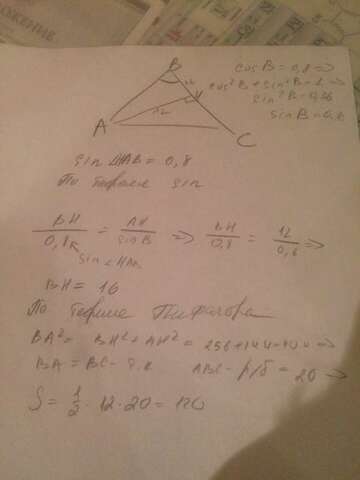 B
A
C
H
12
16
cos B = 0,8 =>
cos²B + sin²B = 1 =>
sin²B = 0,36
sin B = 0,6
sin HAB = 0,8
По теореме sin
BH/0,8 = AH/sin B => BH/0,8 = 12/0,6 =>
sin ∠HAB
BH = 16
По теореме Пифагора
BA² = BH² + AH² = 256 + 144 = 400 =>
BA = BC - т.к. ABC - р/б = 20 =>
S = 1/2 · 12 · 20 = 120